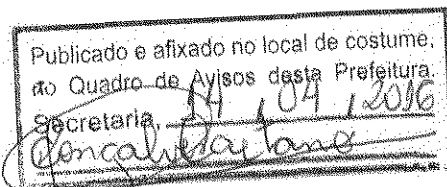 Publicado e afixado no local de costume,
do Quadro de Avisos desta Prefeitura.
Secretaria, 14 / 04 / 2016